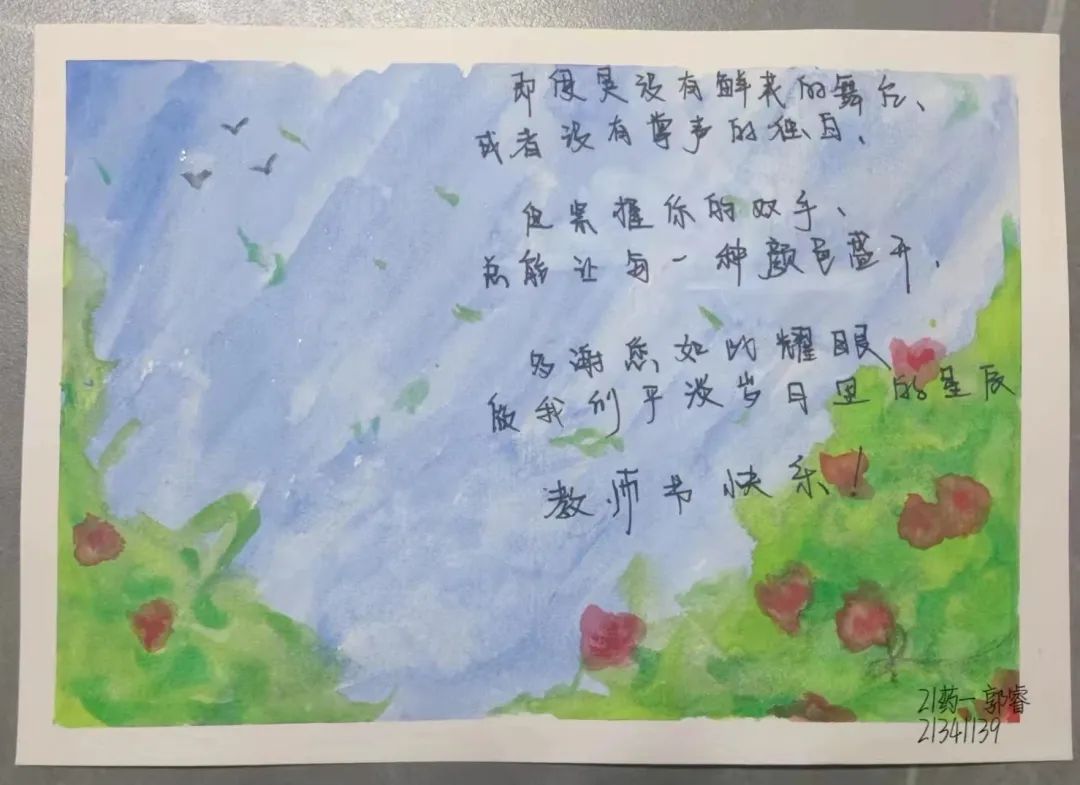 即便是没有鲜花的舞台、
或者没有掌声的独白,
但紧握你的双手、
总能让每一种颜色盛开,
多谢您如此耀眼
做我们平淡岁月里的星辰
教师节快乐!
21药一郭睿
21341139